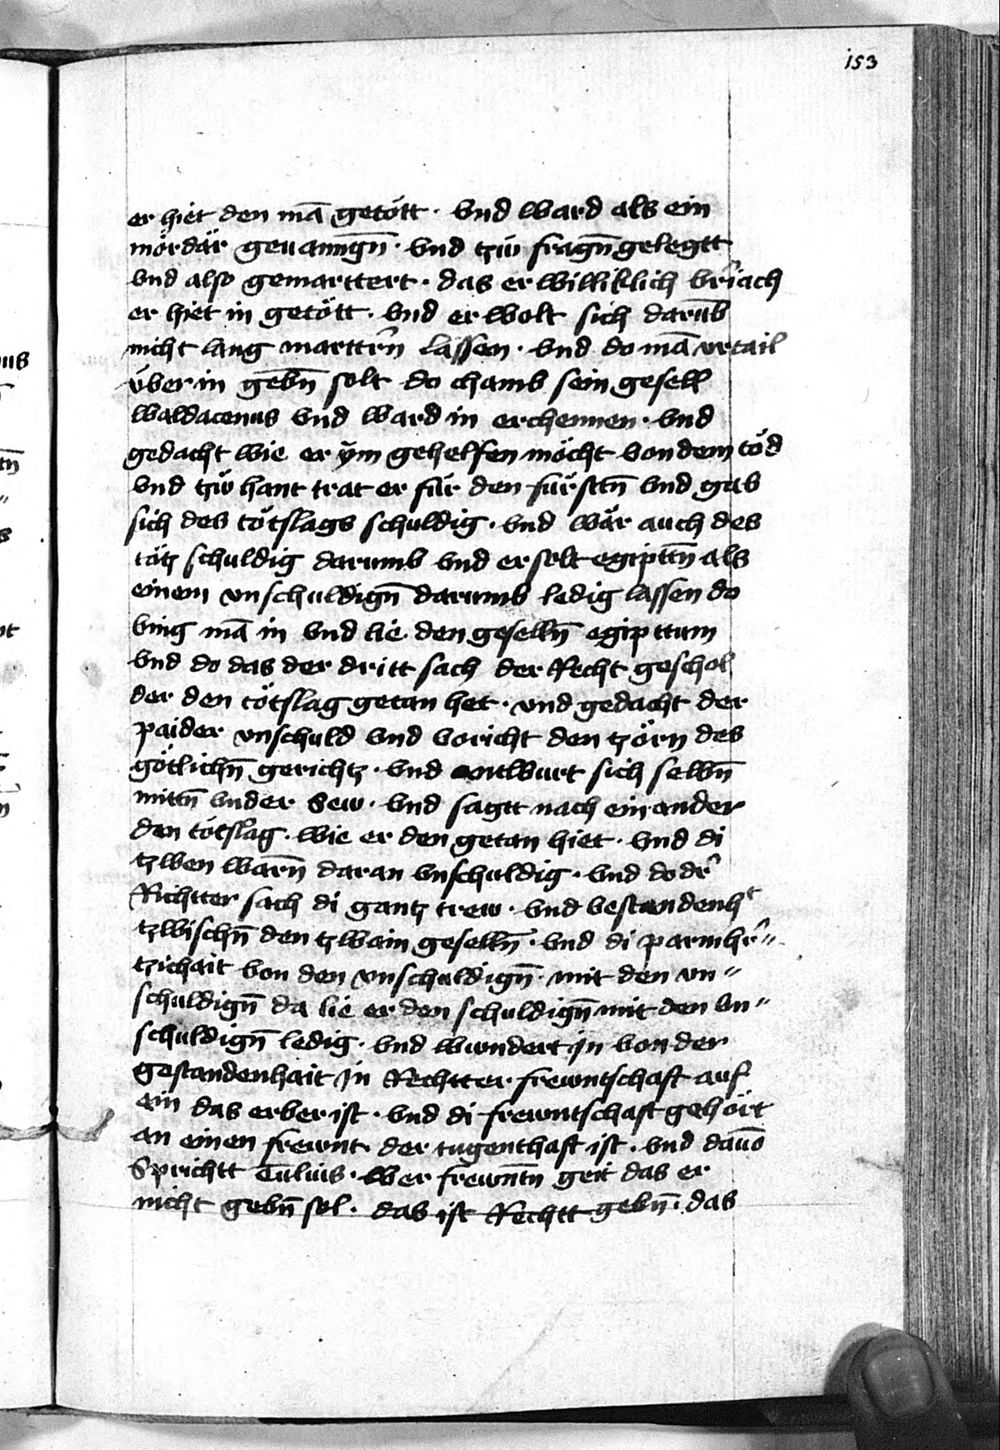 153
er hiet den mā getött · vnd ward als ein
mördär geuanngn̄ · vnd tzw fragn̄ gelegtt
vnd also gemarttert · das er williklich v̂riach
er hiet in getött · vnd er wolt sich darūb
nicht lang marttr̂n lassen · vnd do mā vrtail
über in gebn̄ solt do chamb sein gesell
waldacenus vnd ward in erchennen · vnd
gedacht wie er ÿm gehelfen möcht von dem töd
vnd tzw hant trat er für den fürsttn̄ vnd gab
sich des tötslags schuldig · vnd wär auch des
tötz schuldig darumb vnd er solt egipttn̄ als
einem vnschuldign̄ darumb ledig lassen do
ving mā in vnd lie den geselln̄ egipttum
vnd do das der dritt sach der Recht geschol
der den tötslag getan het · vnd gedacht der
paider vnschuld vnd voricht den tzörn des
götlichn̄ gerichtz · vnd antwurt sich selbn̄
mittn̄ vnder sew · vnd sagtt nach einander
den tötslag · wie er den getan hiet · vnd di
tzwen warn̄ daran vnschuldig · vnd do dr̂
Richtter sach di gantz trew · vnd bestandenht
tzwischn̄ den tzwain geselln̄ · vnd di parmhr̂〃
tzichait von den vnschuldign̄ · mit den vn〃
schuldign̄ da lie er den schuldign̄ mit den vn〃
schuldign̄ ledig · vnd wundert in von der
gestandenhait in Rechtter frewntschaft auf
ein das erber ist · vnd di frewntschaft gehört
an einen frewnt der tugenthaft ist · vnd dauō
Sprichtt Tulius · wer frewntn̄ geit das er
nicht gebn̄ sol · das ist Rechtt gebn̄ · das